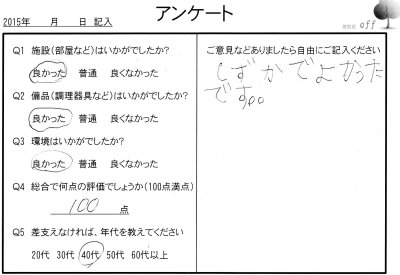 アンケート
2015年　月　日 記入
off
Q1 施設(部屋など)はいかがでしたか?
良かった　普通　良くなかった
Q2 備品(調理器具など)はいかがでしたか?
良かった　普通　良くなかった
Q3 環境はいかがでしたか?
良かった　普通　良くなかった
Q4 総合で何点の評価でしょうか(100点満点)
100 点
Q5 差支えなければ、年代を教えてください
20代 30代 40代 50代 60代以上
ご意見などありましたら自由にご記入ください
しずかでよかった
です。。